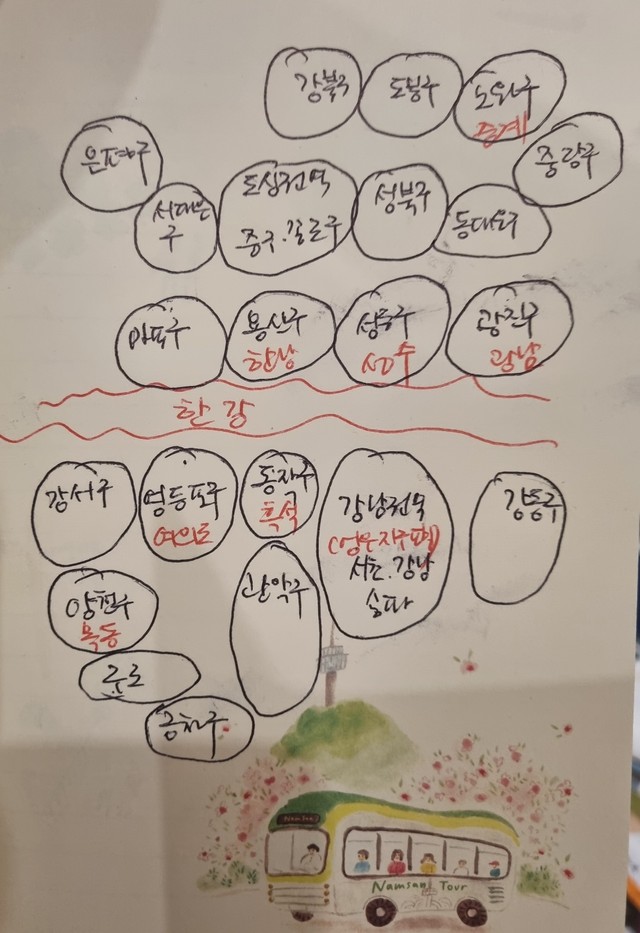 강북구
도봉구
노원구
중계
은평구
중랑구
서대문
구
도심권역
중구.종로구
성북구
동대문구
마포구
용산구
한남
성동구
성수
광진구
광남
한강
강서구
영등포구
여의도
동작구
흑석
강남권역
서초.강남
송파
강동구
양천구
목동
관악구
구로
금천구
Namsan
Namsan Tour